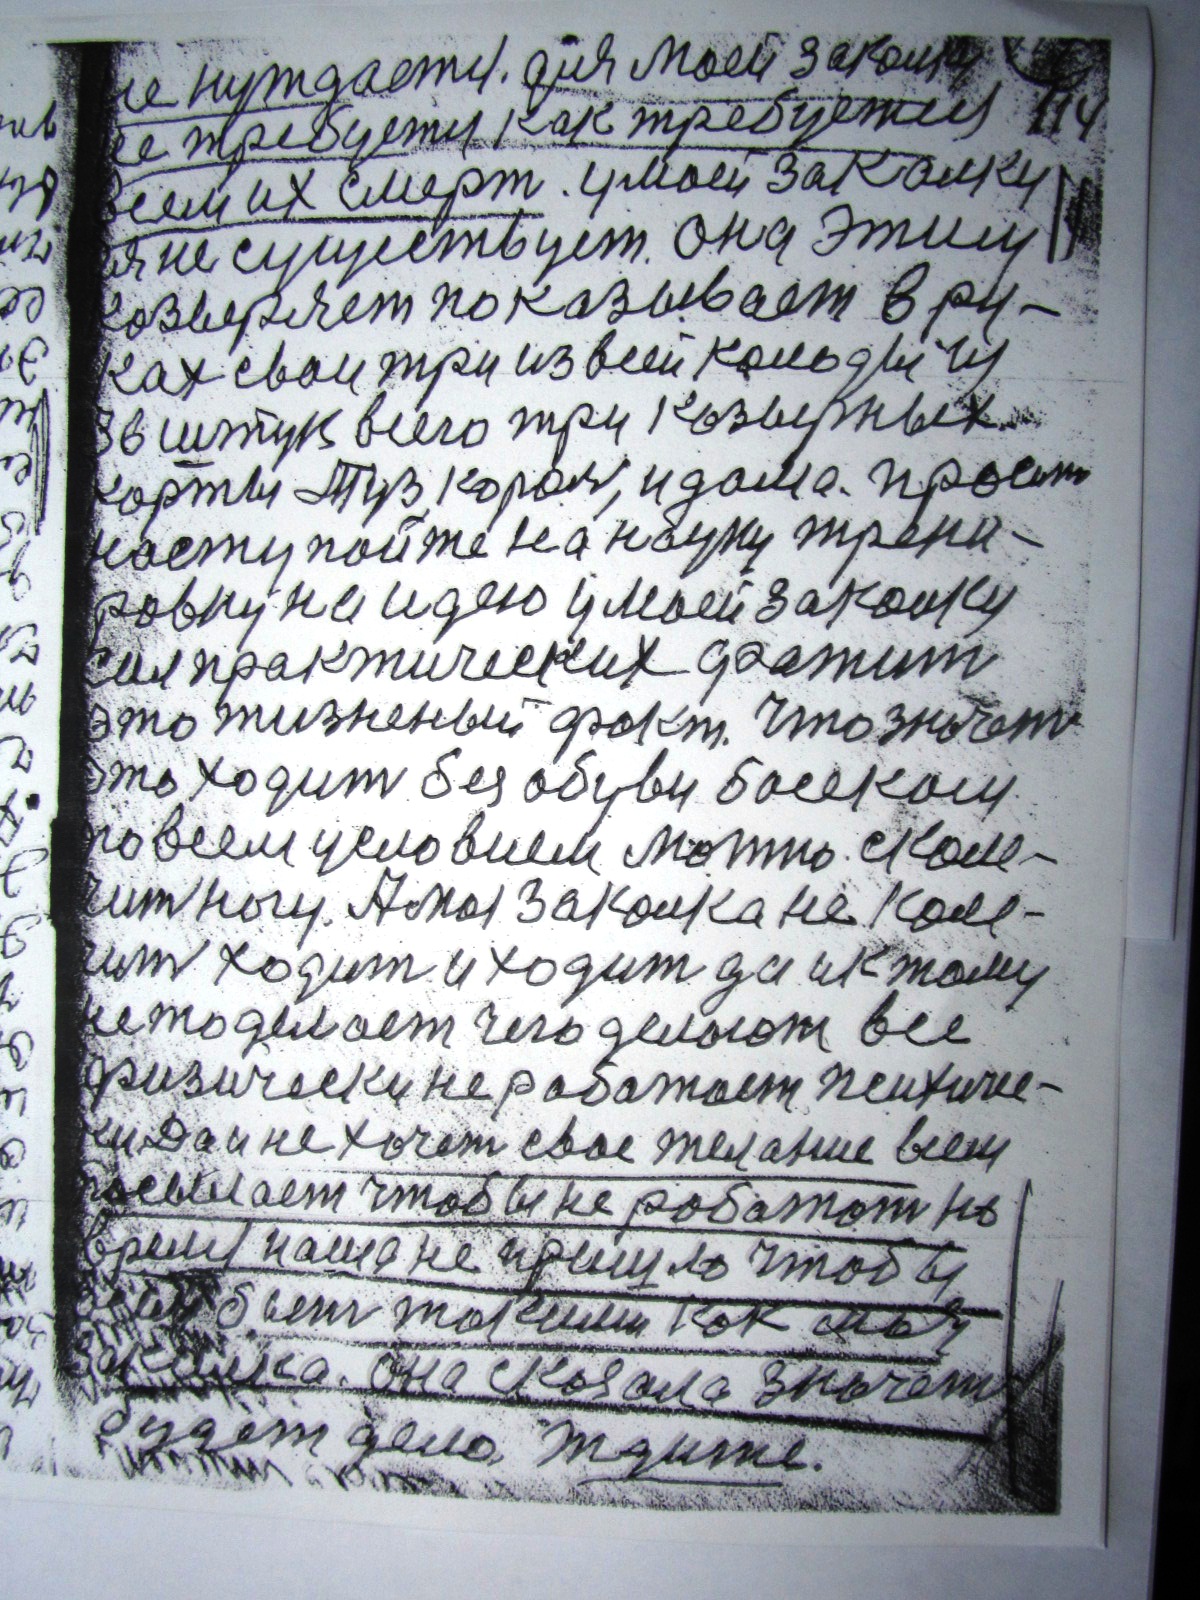 не нуждаети. для моей закалки
не требуети как требуетия 114
всем их смерт. у моей закалки
ея не существует. она этим
козыряет показывает в ру-
ках свои три из всей колоды
36 штук всего три козырных
карты туз, короля, и дама. просит
поступайте на науку трени-
ровку на идею у моей закалки
сил практических фатит
это жизненый факт. что значет
это ходит без обуви босеком
по всем условием можно. скале-
чит ногу. А моя закалка не кале-
чит ходит и ходит да и к тому
не то делает чего делают все
физически не работает психиче-
ки Да и не хочет свое желание всем
посылает чтобы не работат но
время наша не пришло чтобы
всем быт такими как моя
закалка. она сказала значет
будет дело. ждите.